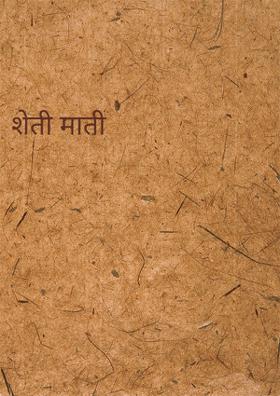 शेती माती